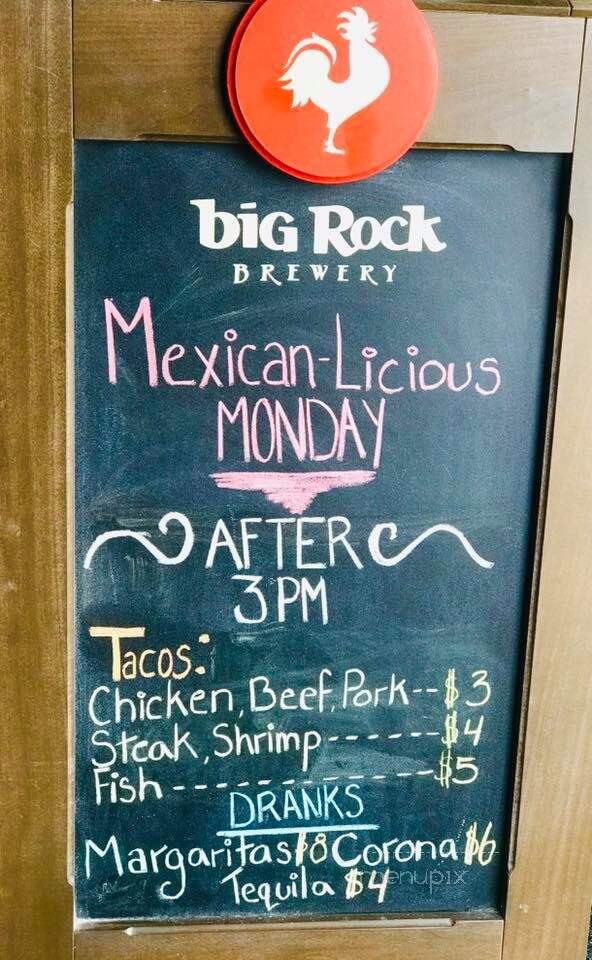 big Rock
BREWERY
Mexican-Licious
MONDAY
AFTER
3PM
Tacos:
Chicken, Beef, Pork--$3
Steak, Shrimp------$4
Fish------------$5
DRANKS
Margaritas $8 Corona $6
Tequila $4
menupix